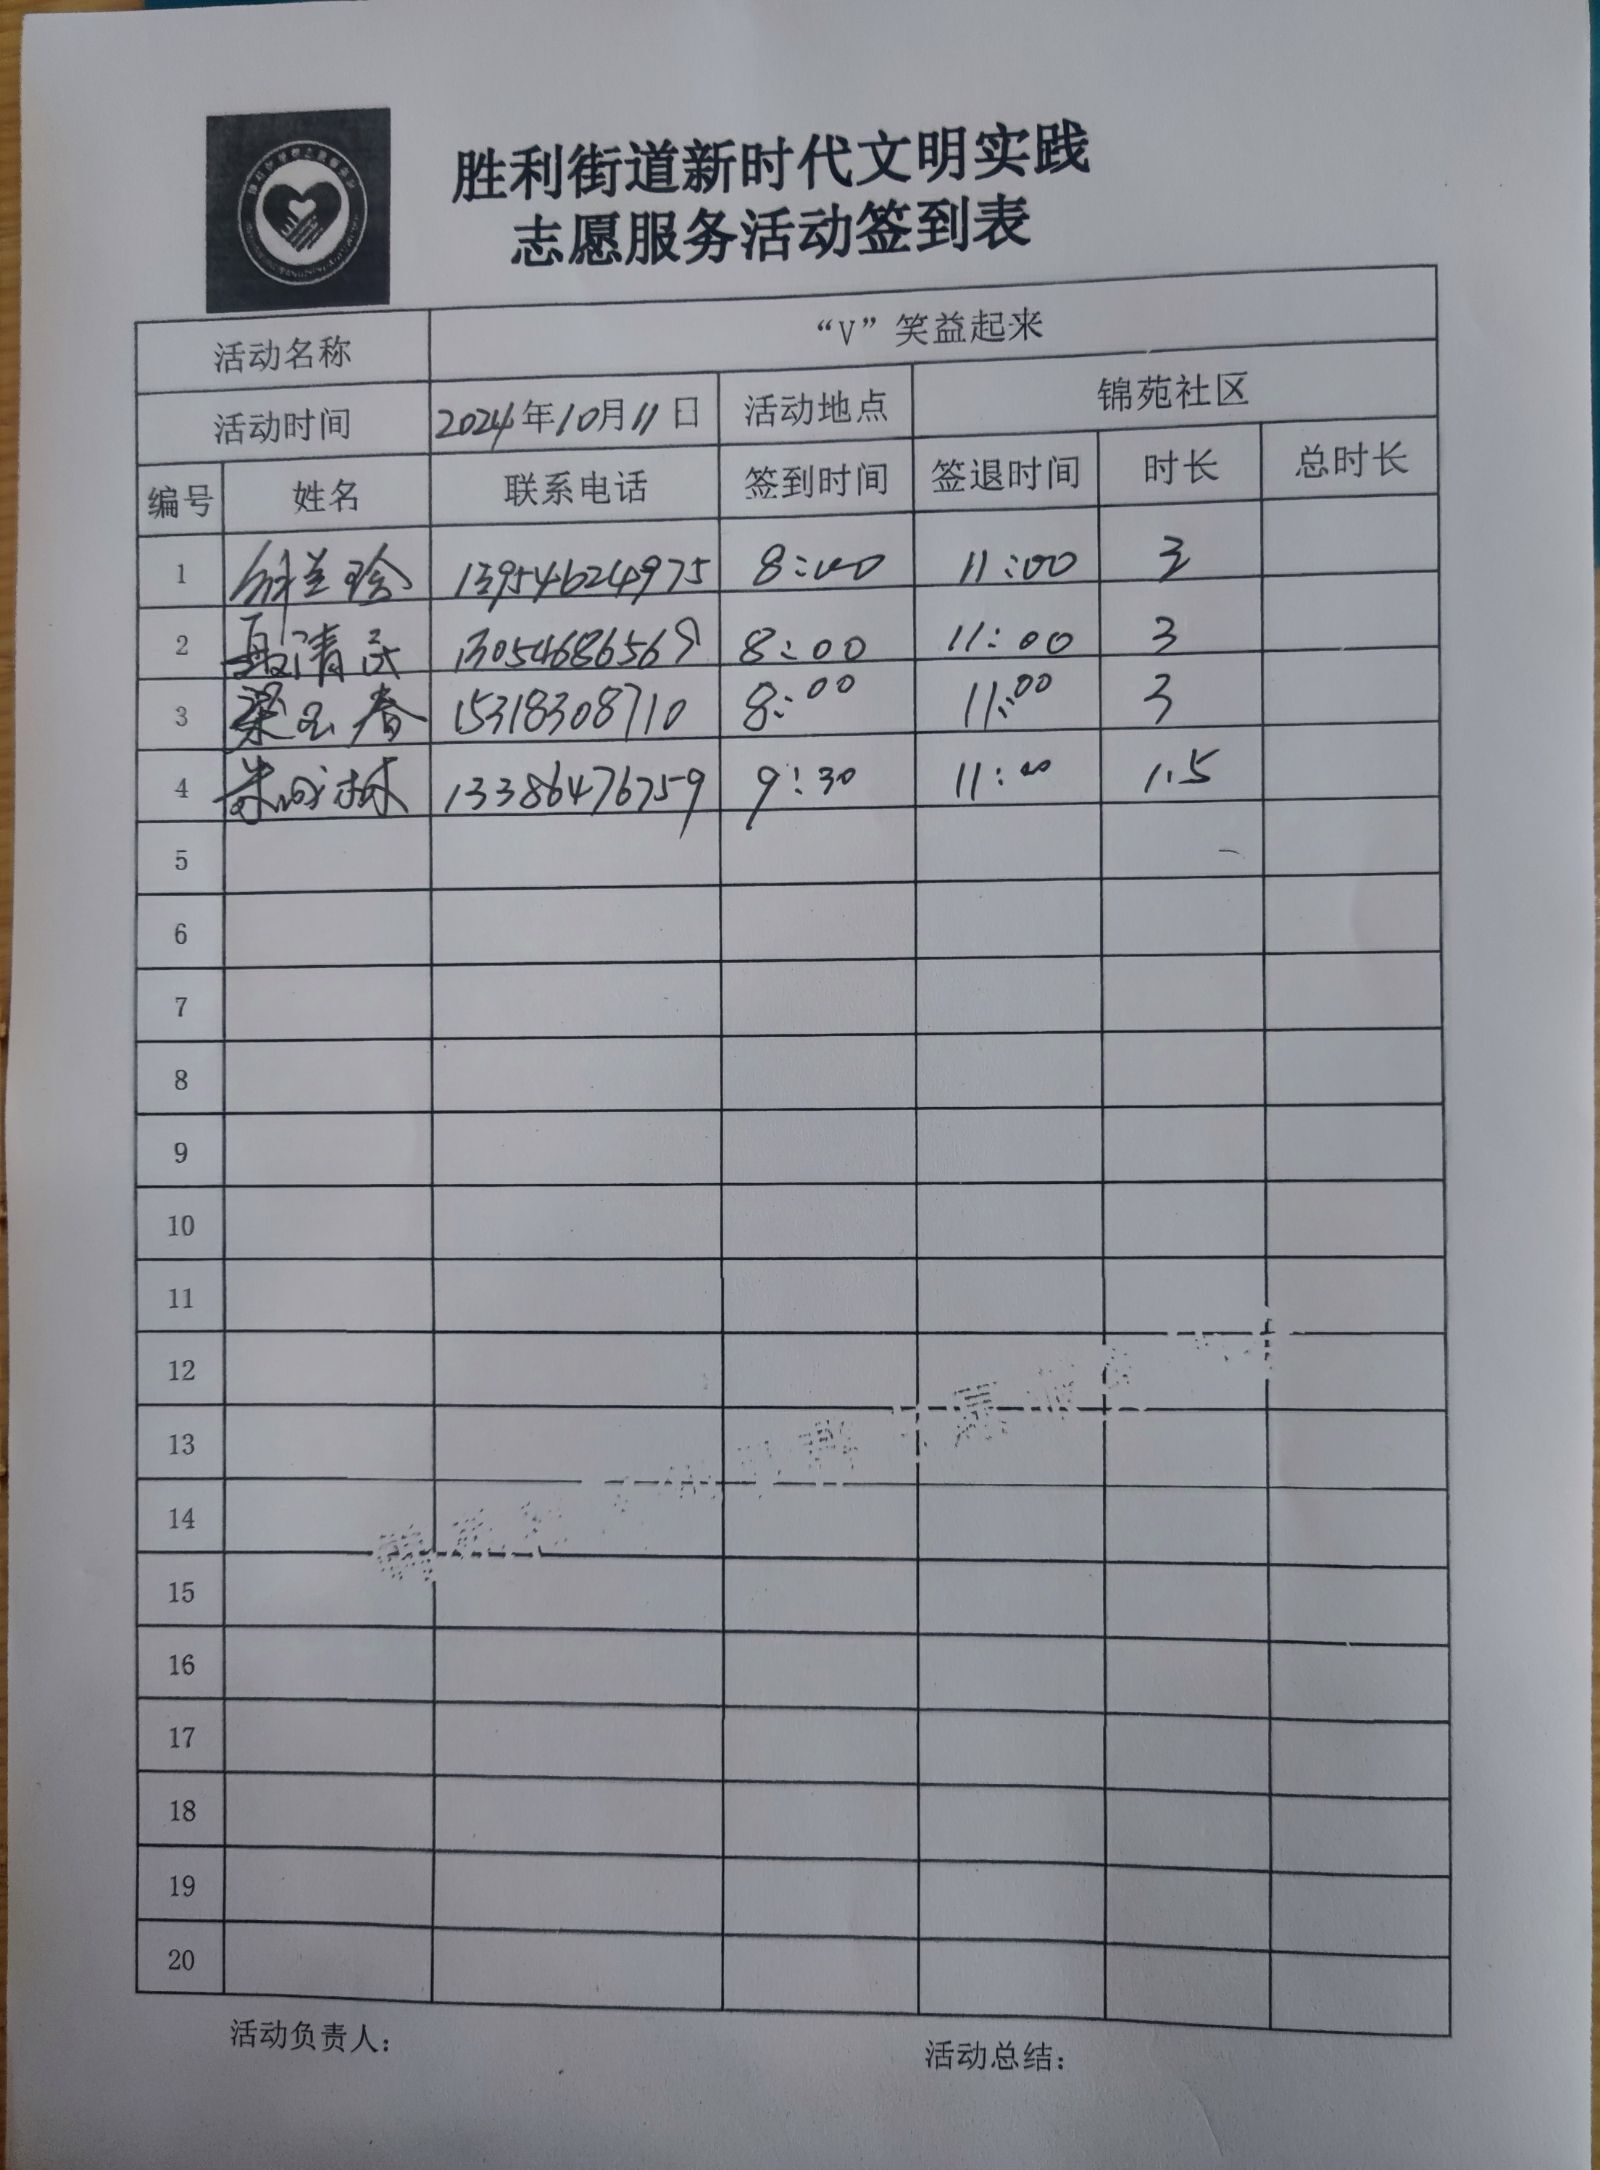 胜利街道新时代文明实践
志愿服务活动签到表
活动名称 “V”笑益起来
活动时间 2024年10月11日 活动地点 锦苑社区
编号 姓名 联系电话 签到时间 签退时间 时长 总时长
1 兰 13954624975 8:00 11:00 3
2 清 13054686569 8:00 11:00 3
3 梁玉春 15318308710 8:00 11:00 3
4 朱成林 13386476759 9:30 11:00 1.5
5
6
7
8
9
10
11
12
13
14
15
16
17
18
19
20
活动负责人： 活动总结：